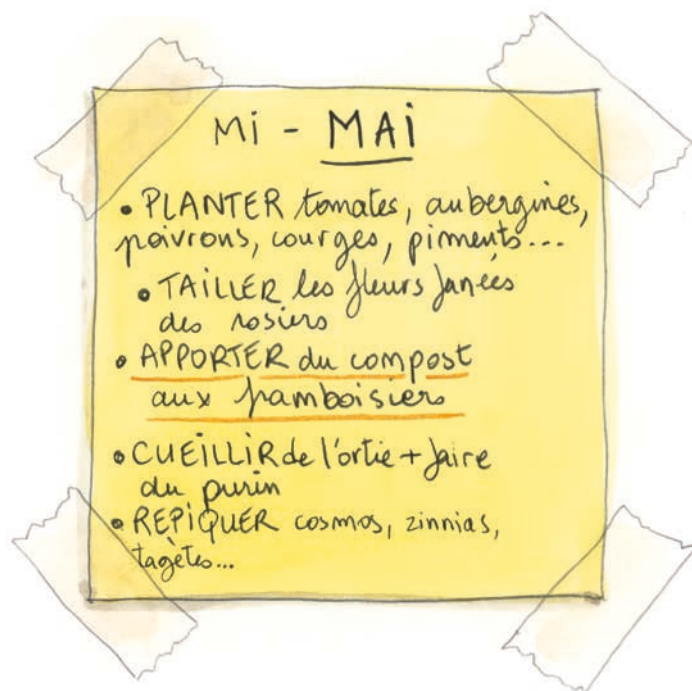 Mi - MAi
• PLANTER tomates, aubergines,
poivrons, courges, piments...
• TAiLLER les fleurs fanées
des rosiers
• APPORTER du compost
aux framboisiers
• CUEiLLiR de l'ortie + faire
du purin
• REPiQUER cosmos, zinnias,
tagètes...